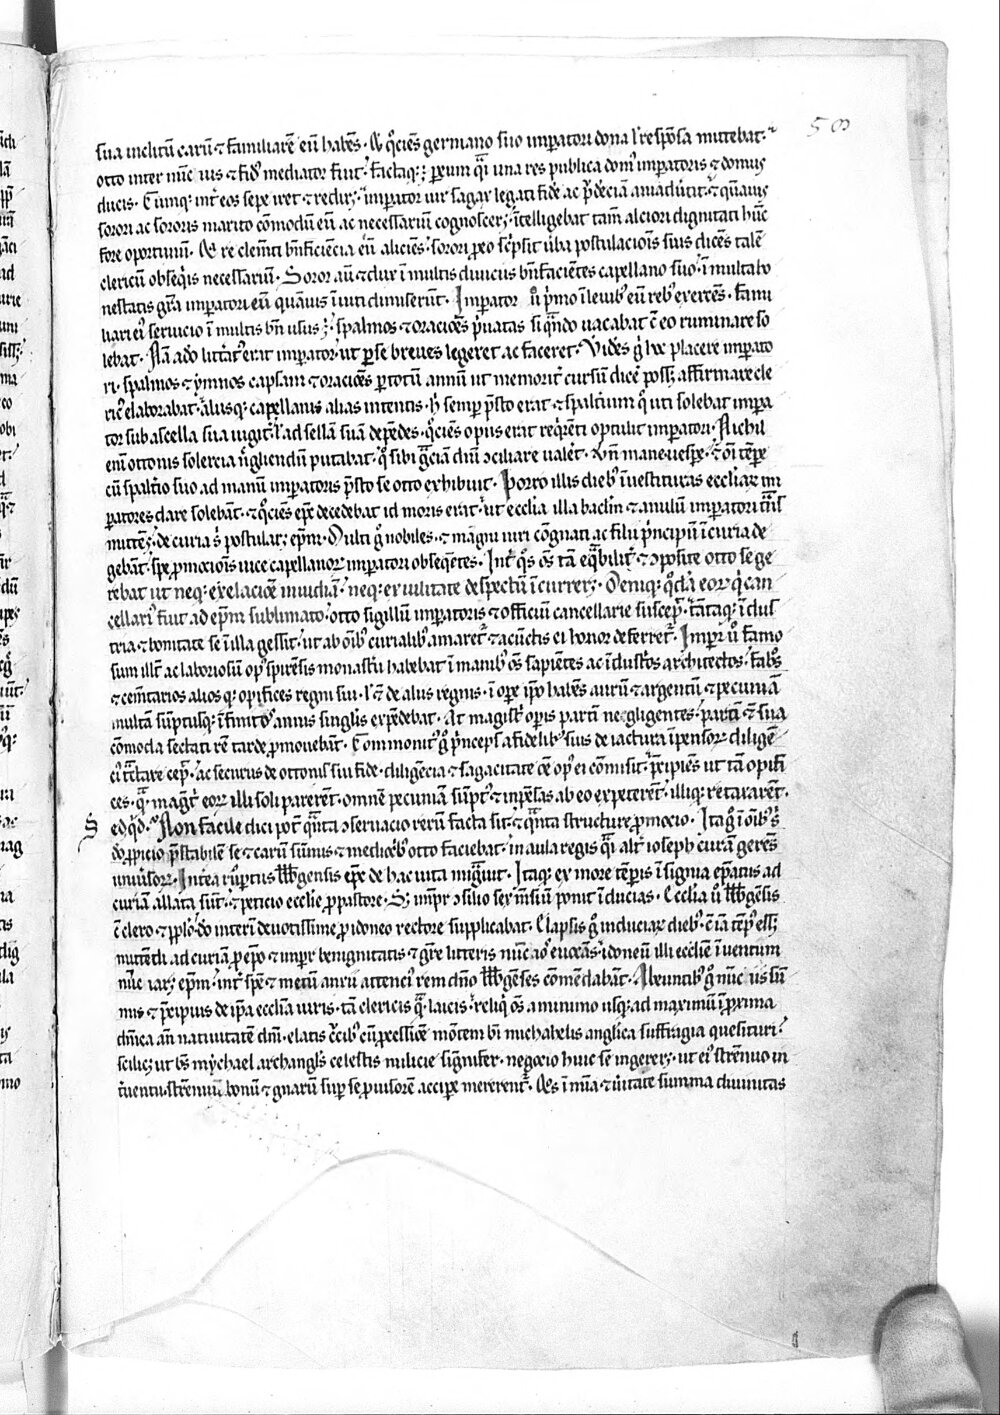 503
sua inclitū carū ⁊ familiarē eū habēs. Et q̊ciēs germano suo imperatori dona l̓ respōsa mittebat.
otto inter nūcius ⁊ fid᷒ mediator fiuit. factaq; ꝑ eum q̄i una res publica dom᷒ imperatoris ⁊ domus
ducis. Cumq; int̓ eos sepe iret ⁊ rediret imperator uir sagax legati fidē ac
sorori ac sororis marito cōmodū eū ac necessariū cognosceret; ītelligebat tam̄ alciori dignitati hūc
fore oportunū. Et re clemēti bn̄ficiēcia eū aliciēs. sorori ꝓ eo sc̓psit uba postulaciōis suis dicēs talē
clericū obseq̓is necessariū. Soror aū ⁊ dux ī multis diuiciis bn̄facientes capellano suo. ī multa ho
nestatis gr̄a imperatori eū quāuis īuiti dimiserūt. Imperator u̓ p̓mo ī leuib᷒ eū reb᷒ exercēs. fami
liari ei᷒ seruicio ī multis bn̄ usus ē. spalmos ⁊ oraciōes p̓uatas si q̄ndo uacabat cū eo ruminare so
lebat. Nā adō litt̓at᷒ erat imperator. ut ꝑ se breues legeret ac faceret. Vidēs g̊ hoc placere imperato
ri. spalmos ⁊ ymnos capsam ⁊ oraciōes ꝑ totū annū ut memorit̓ cursū dic̓e poss; affirmare cle
ric᷒ elaborabat. aliisq; capellanis alias intentis. h̓ semꝑ p̄sto erat ⁊ spalt̓ium q̊ uti solebat impera
tor sub ascella sua iugit̓ l̓ ad sellā suā depēdēs. q̊ciēs opus erat req̓rēti optulit imperatori. Nichil
enī ottonis solercia n̓gliendū putabat. q̊ sibi gr̄ciam dn̄i ɔciliare ualēt. Vn̄ mane uesꝑe. ⁊ oī tēꝑe
cū spalt̓io suo ad manū imperatoris p̄sto se otto exhibuit. Porro illis dieb᷒ īuestituras eccliaꝝ im
ꝑatores dare solebāt. ⁊ q̊ciēs ep̄c decedebat id moris erat. ut ecclia illa baclm̄ ⁊ anulū imperatori t̓ns
mitteret; de curia s̓ postularet ep̄m. Multi g̊ nobiles. ⁊ magni iuri cōgnati ac filii p̓ncipū ī curia de
gebāt. spe ꝓmociōis uice capellanoꝝ imperatori obseqētes. Int̓ q̊s os̄ tā eq̄bilit̓ ⁊ ɔposite otto se ge
rebat ut neq; ex elaciōe inuidiā. neq; ex uilitate despectū īcurreret. Deniq; q̊dā eoꝝ q̓ can
cellari᷒ fuit ad ep̄m sublimato. otto sigillū imperatoris ⁊ officiū cancellarie suscep̄. tātaq; īdus
tria ⁊ bonitate se ī illa gessit. ut ab oīb᷒ curialib᷒ amaret̓ ⁊ a cūctis ei honor deferret̓. Impr̄ u̓ famo
sum illt̓ ac laboriosū op᷒ spirēsis monast̓ii habebat ī manib᷒ os̄ sapiētes ac īdust̓os architectos. fab̓os
⁊ cemētarios aliosq; opifices regni sui. l̓ ⁊ de aliis regnis. ī oꝑe ip̄o habēs aurū ⁊ argentū ⁊ pecuniā
multā sūptusq; īfinitos annis singlis expēdebat. At magist̓ opis partī negligentes. partī ⁊ sua
cōmoda sectati rē tarde ꝓmouebāt. Commonit᷒ g̊ p̓nceps a fidelib᷒ suis de iactura īpensoꝝ diligē
t̓ tractare cep̄. ac securus de ottonis sui fide. diligēcia ⁊ sagacitate oē op᷒ ei cōmisit. p̄cipiēs ut tā opifi
ces. q̄ mag̓r eoꝝ illi soli parerēt. omnē pecuniā sūpt᷒ ⁊ inpēsas ab eo expeterēt. illiq; retaxarēt.
Sed q̊d. Non facile dici pot̓ q̄nta ɔseruacio rerū facta sit. ⁊ q̄nta structure ꝓmocio. Itaq̊ ī oīb᷒ s̓
do ꝓpicio p̄stabilē se ⁊ carū sūmis ⁊ mediocb᷒ otto faciebat. in aula regis q̄i alt̓ ioseph curā gerēs
uniūsoꝝ. Intea rup̄tus bbgensis ep̄c de hac uita migūit. Itaq; ex more tēꝑis īsignia ep̄atus ad
curiā allata sūt. ⁊ peticio ecclie ꝓ pastore. S; impr̄ ɔsilio sex mēsiū ponit īducias. Ecclia u̓ bbgēsis
ī clero ⁊ pplō. do interī deuotissime ꝓ idoneo rectore supplicabat. Elapsis g̊ induciaꝝ dieb᷒. ēiā tēp᷒ ess;
mittēdi ad curiā ꝓ ep̄o ⁊ impr̄ benignitatis ⁊ gr̄e litteris
nūc iaꝝ ep̄m. int̓ spē ⁊ metū anxii attenci᷒ rem dn̄o bbgēses cōmēdabāt. Abeuntib᷒ g̊ nūciis sū
mis ⁊ p̄cipuis de ip̄a ecclia uiris. tā clericis q̄ laicis. reliq̓ os̄ a minimo usq; ad maximū ī ꝓxima
dn̄ica an̄ natiuitatē dn̄i. elatis c̓cib᷒ cū ꝓcessiōe mōtem bi michahelis anglica suffragia quesituri.
scilic; ut bs̄ mychael archangls̄ celestis milicie signifer. negocio huic sē ingereret. ut ei᷒ strēnuo in
t̓uentu. strēnuū bonū ⁊ gnarū suꝑ se ꝓuisorē accipe mererent̓.